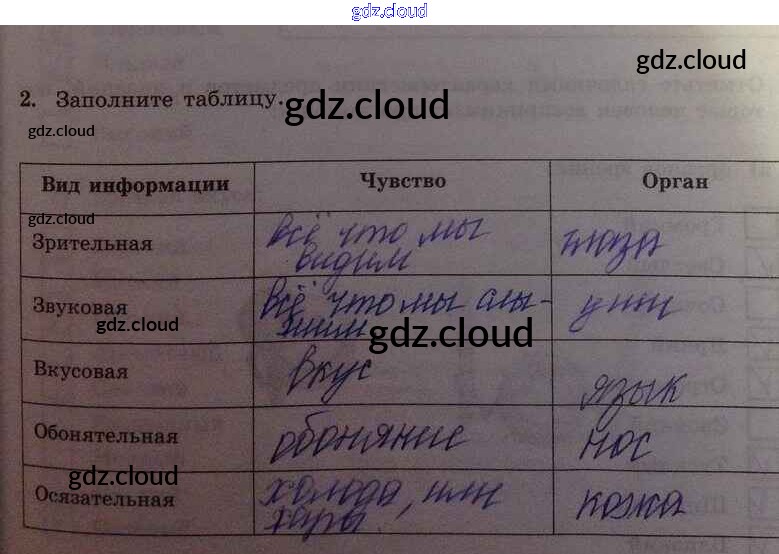 gdz.cloud
gdz.cloud
2. Заполните таблицу.
gdz.cloud
gdz.cloud
Вид информации Чувство Орган
gdz.cloud
Зрительная всё что мы видим глаза
Звуковая всё что мы слышим уши
gdz.cloud
gdz.cloud
Вкусовая вкус язык
Обонятельная обоняние нос
gdz.cloud
Осязательная холода, или кожа
gdz.cloud